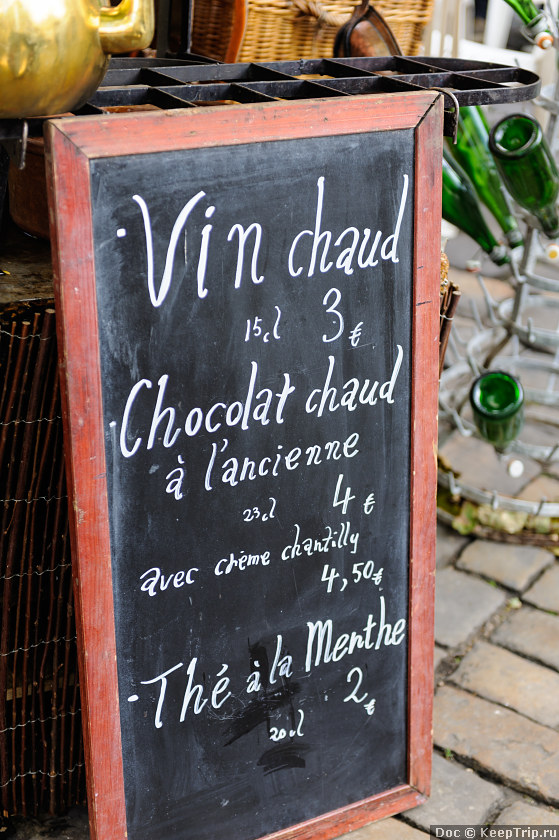 · Vin chaud
15cl 3€
· Chocolat chaud
à l'ancienne
23cl 4€
avec crème chantilly
4,50€
· Thé à la Menthe
20cl 2€
Doc © KeepTrip.ru